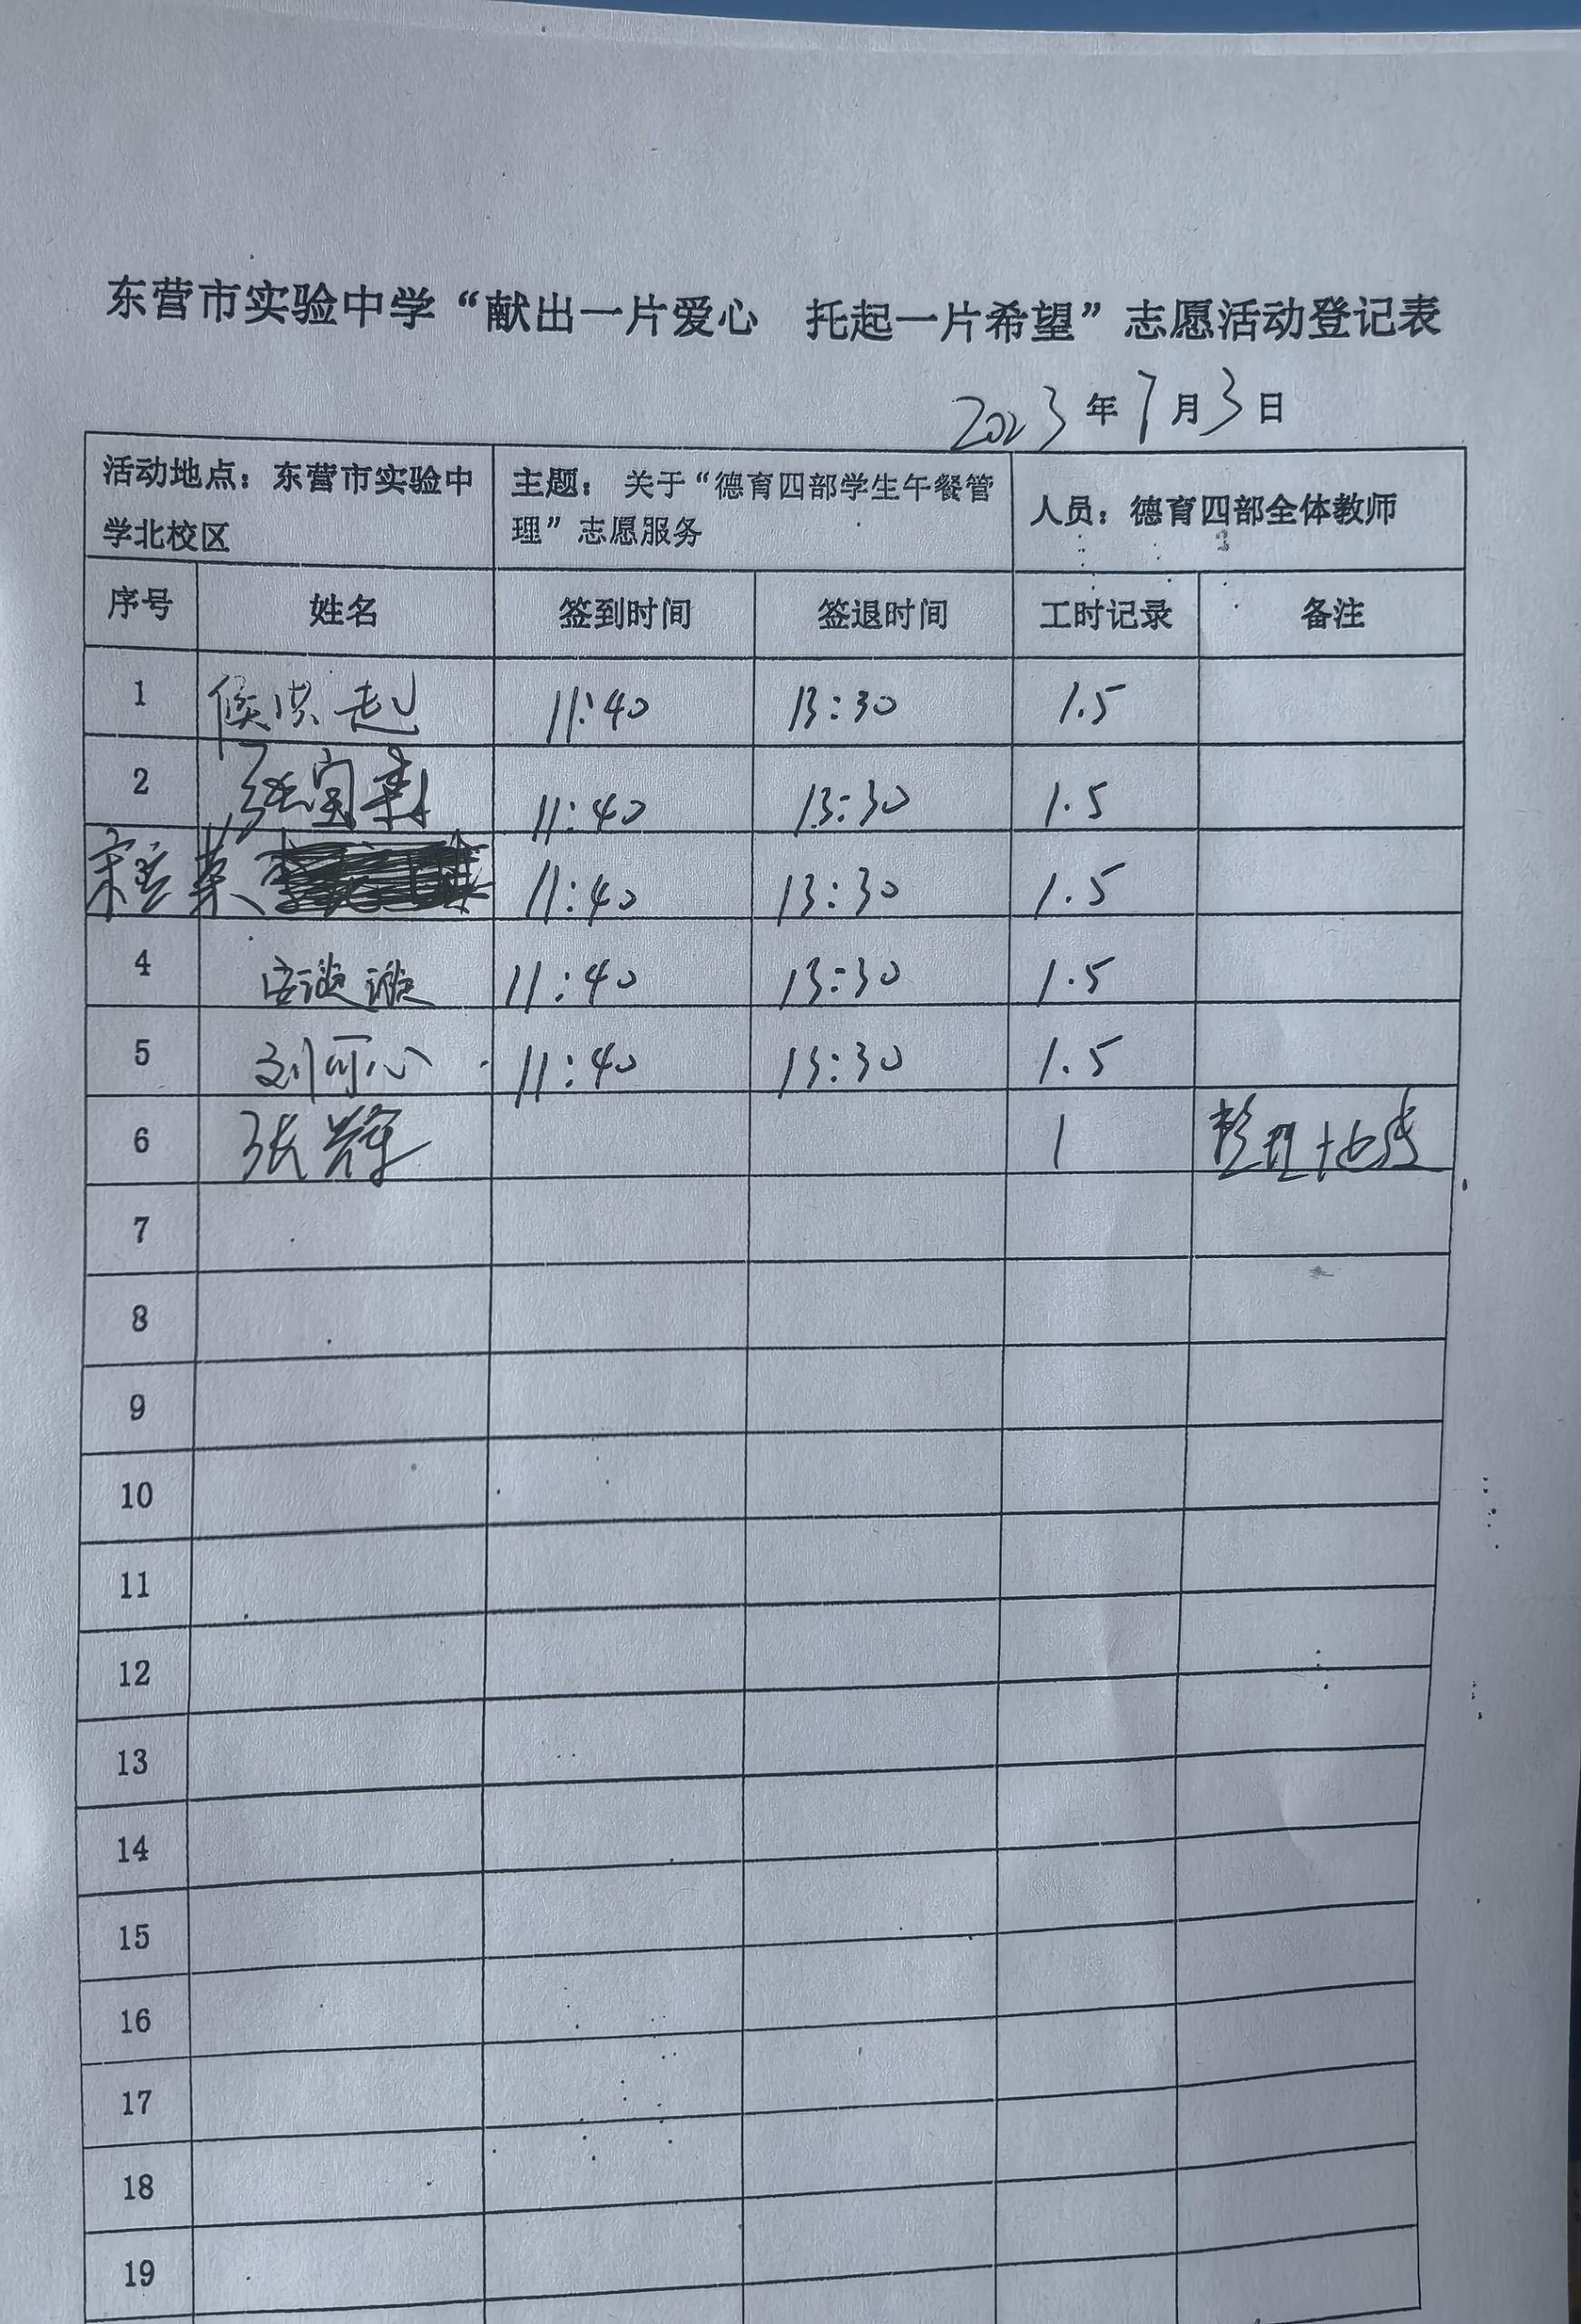 东营市实验中学“献出一片爱心 托起一片希望”志愿活动登记表
2023年7月3日
活动地点：东营市实验中学北校区 主题：关于“德育四部学生午餐管理”志愿服务 人员：德育四部全体教师
序号 姓名 签到时间 签退时间 工时记录 备注
1 侯洪起 11:40 13:30 1.5
2 张宝 11:40 13:30 1.5
宋 英 11:40 13:30 1.5
4 安谈谈 11:40 13:30 1.5
5 刘可心 11:40 13:30 1.5
6 张辉 1 整理
7
8
9
10
11
12
13
14
15
16
17
18
19